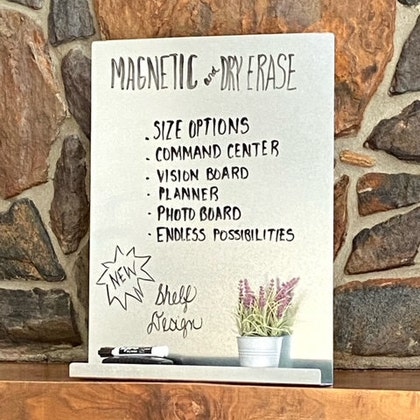 MAGNETIC and DRY ERASE
. SIZE OPTIONS
. COMMAND CENTER
. VISION BOARD
. PLANNER
. PHOTO BOARD
. ENDLESS POSSIBILITIES
NEW
Shelf
Design